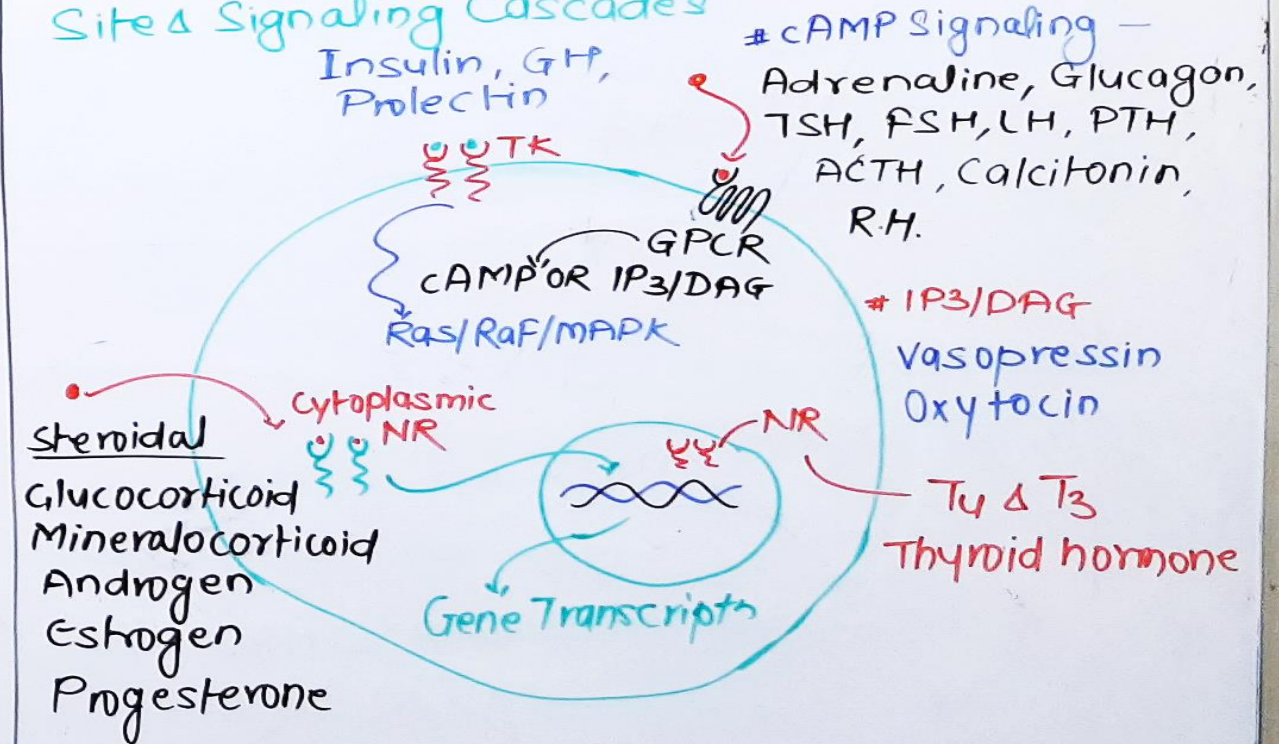 Site & Signaling Cascades
Insulin, GH,
Prolectin
TK
# cAMP Signaling —
Adrenaline, Glucagon,
TSH, FSH, LH, PTH,
ACTH, Calcitonin,
R.H.
GPCR
cAMP OR IP3/DAG
Ras/RaF/MAPK
# IP3/DAG
Vasopressin
Oxytocin
Cytoplasmic
NR
NR
Steroidal
Glucocorticoid
Mineralocorticoid
Androgen
Estrogen
Progesterone
T4 & T3
Thyroid hormone
Gene Transcripts